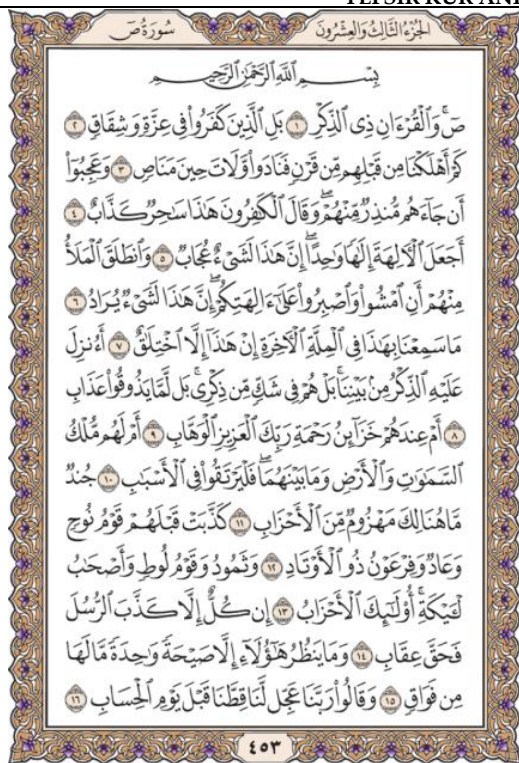 TEFSIR KUR'ANI
سُورَةُ صٓ الجُزْءُ الثَّالِثُ وَالعِشْرُونَ
بِسْمِ ٱللَّهِ ٱلرَّحْمَٰنِ ٱلرَّحِيمِ
صٓۚ وَٱلْقُرْءَانِ ذِى ٱلذِّكْرِ ١ بَلِ ٱلَّذِينَ كَفَرُوا۟ فِى عِزَّةٍ وَشِقَاقٍ ٢
كَمْ أَهْلَكْنَا مِن قَبْلِهِم مِّن قَرْنٍ فَنَادَوا۟ وَّلَاتَ حِينَ مَنَاصٍ ٣ وَعَجِبُوٓا۟
أَن جَآءَهُم مُّنذِرٌ مِّنْهُمْۖ وَقَالَ ٱلْكَٰفِرُونَ هَٰذَا سَٰحِرٌ كَذَّابٌ ٤
أَجَعَلَ ٱلْءَالِهَةَ إِلَٰهًا وَٰحِدًاۖ إِنَّ هَٰذَا لَشَىْءٌ عُجَابٌ ٥ وَٱنطَلَقَ ٱلْمَلَأُ
مِنْهُمْ أَنِ ٱمْشُوا۟ وَٱصْبِرُوا۟ عَلَىٰٓ ءَالِهَتِكُمْۖ إِنَّ هَٰذَا لَشَىْءٌ يُرَادُ ٦
مَا سَمِعْنَا بِهَٰذَا فِى ٱلْمِلَّةِ ٱلْءَاخِرَةِ إِنْ هَٰذَآ إِلَّا ٱخْتِلَٰقٌ ٧ أَءُنزِلَ
عَلَيْهِ ٱلذِّكْرُ مِنۢ بَيْنِنَاۚ بَلْ هُمْ فِى شَكٍّ مِّن ذِكْرِىۖ بَل لَّمَّا يَذُوقُوا۟ عَذَابِ
٨ أَمْ عِندَهُمْ خَزَآئِنُ رَحْمَةِ رَبِّكَ ٱلْعَزِيزِ ٱلْوَهَّابِ ٩ أَمْ لَهُم مُّلْكُ
ٱلسَّمَٰوَٰتِ وَٱلْأَرْضِ وَمَا بَيْنَهُمَاۖ فَلْيَرْتَقُوا۟ فِى ٱلْأَسْبَٰبِ ١٠ جُندٌ
مَّا هُنَالِكَ مَهْزُومٌ مِّنَ ٱلْأَحْزَابِ ١١ كَذَّبَتْ قَبْلَهُمْ قَوْمُ نُوحٍ
وَعَادٌ وَفِرْعَوْنُ ذُو ٱلْأَوْتَادِ ١٢ وَثَمُودُ وَقَوْمُ لُوطٍ وَأَصْحَٰبُ
لْـَٔيْكَةِۚ أُو۟لَٰٓئِكَ ٱلْأَحْزَابُ ١٣ إِن كُلٌّ إِلَّا كَذَّبَ ٱلرُّسُلَ
فَحَقَّ عِقَابِ ١٤ وَمَا يَنظُرُ هَٰٓؤُلَآءِ إِلَّا صَيْحَةً وَٰحِدَةً مَّا لَهَا
مِن فَوَاقٍ ١٥ وَقَالُوا۟ رَبَّنَا عَجِّل لَّنَا قِطَّنَا قَبْلَ يَوْمِ ٱلْحِسَابِ ١٦
٤٥٣